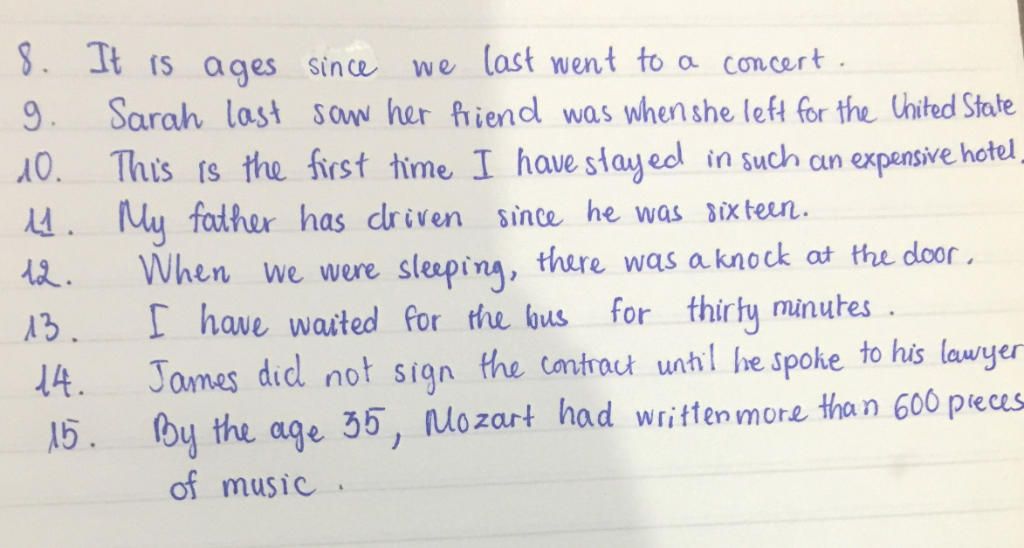 8. It is ages since we last went to a concert.
9. Sarah last saw her friend was when she left for the United State
10. This is the first time I have stayed in such an expensive hotel.
11. My father has driven since he was sixteen.
12. When we were sleeping, there was a knock at the door.
13. I have waited for the bus for thirty minutes.
14. James did not sign the contract until he spoke to his lawyer
15. By the age 35, Mozart had written more than 600 pieces
of music.